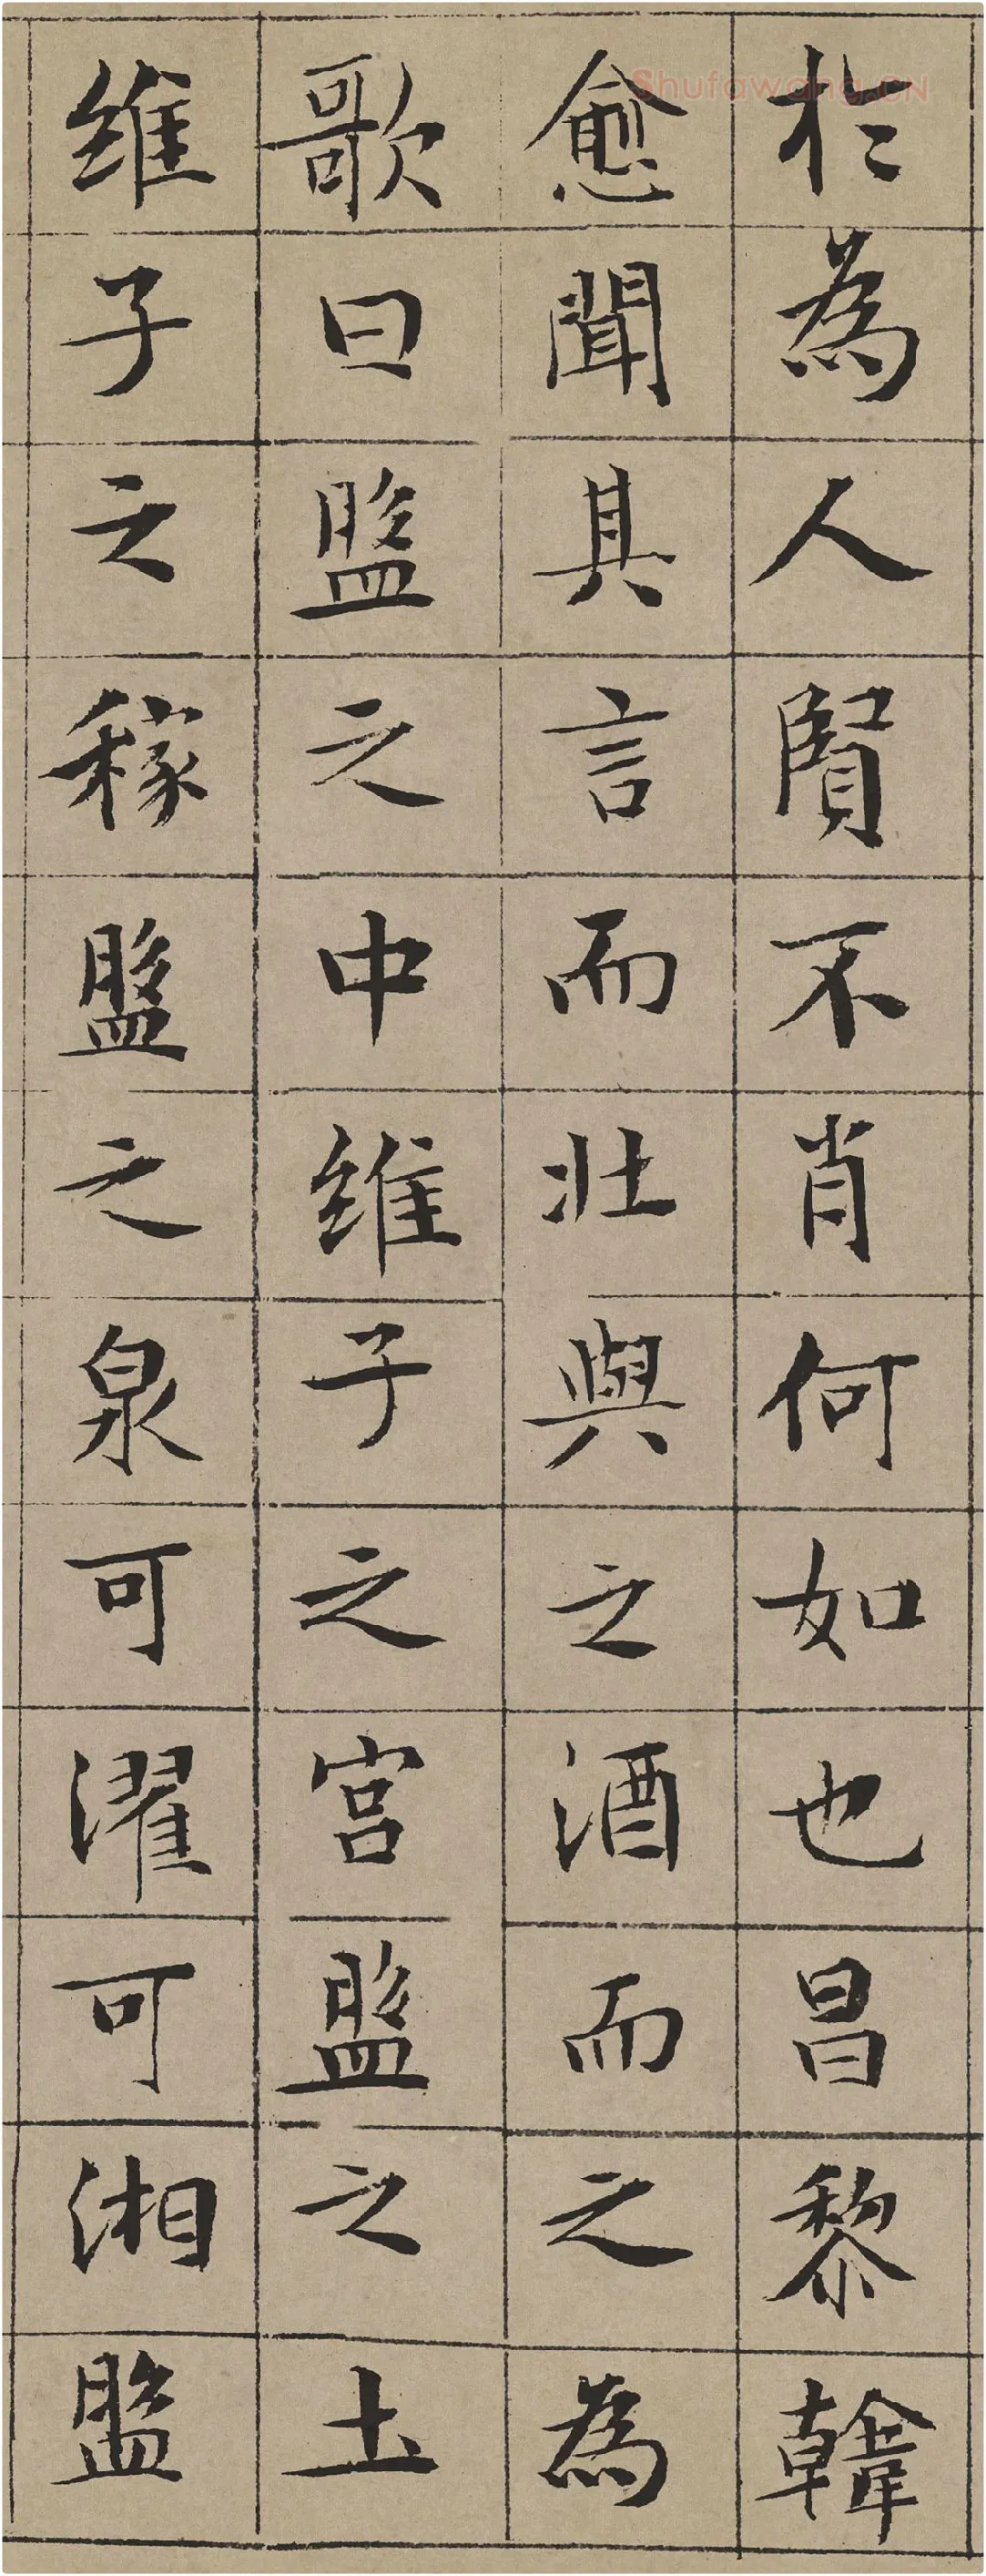 於為人賢不肖何如也昌黎韓
愈聞其言而壯與之酒而之為
歌曰盤之中維子之宮盤之土
維子之稼盤之泉可濯可湘盤
Shufawang.CN